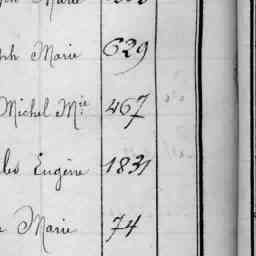 Marie
ph Marie 629
Michel Mie 467
les Eugène 1831
Marie 74